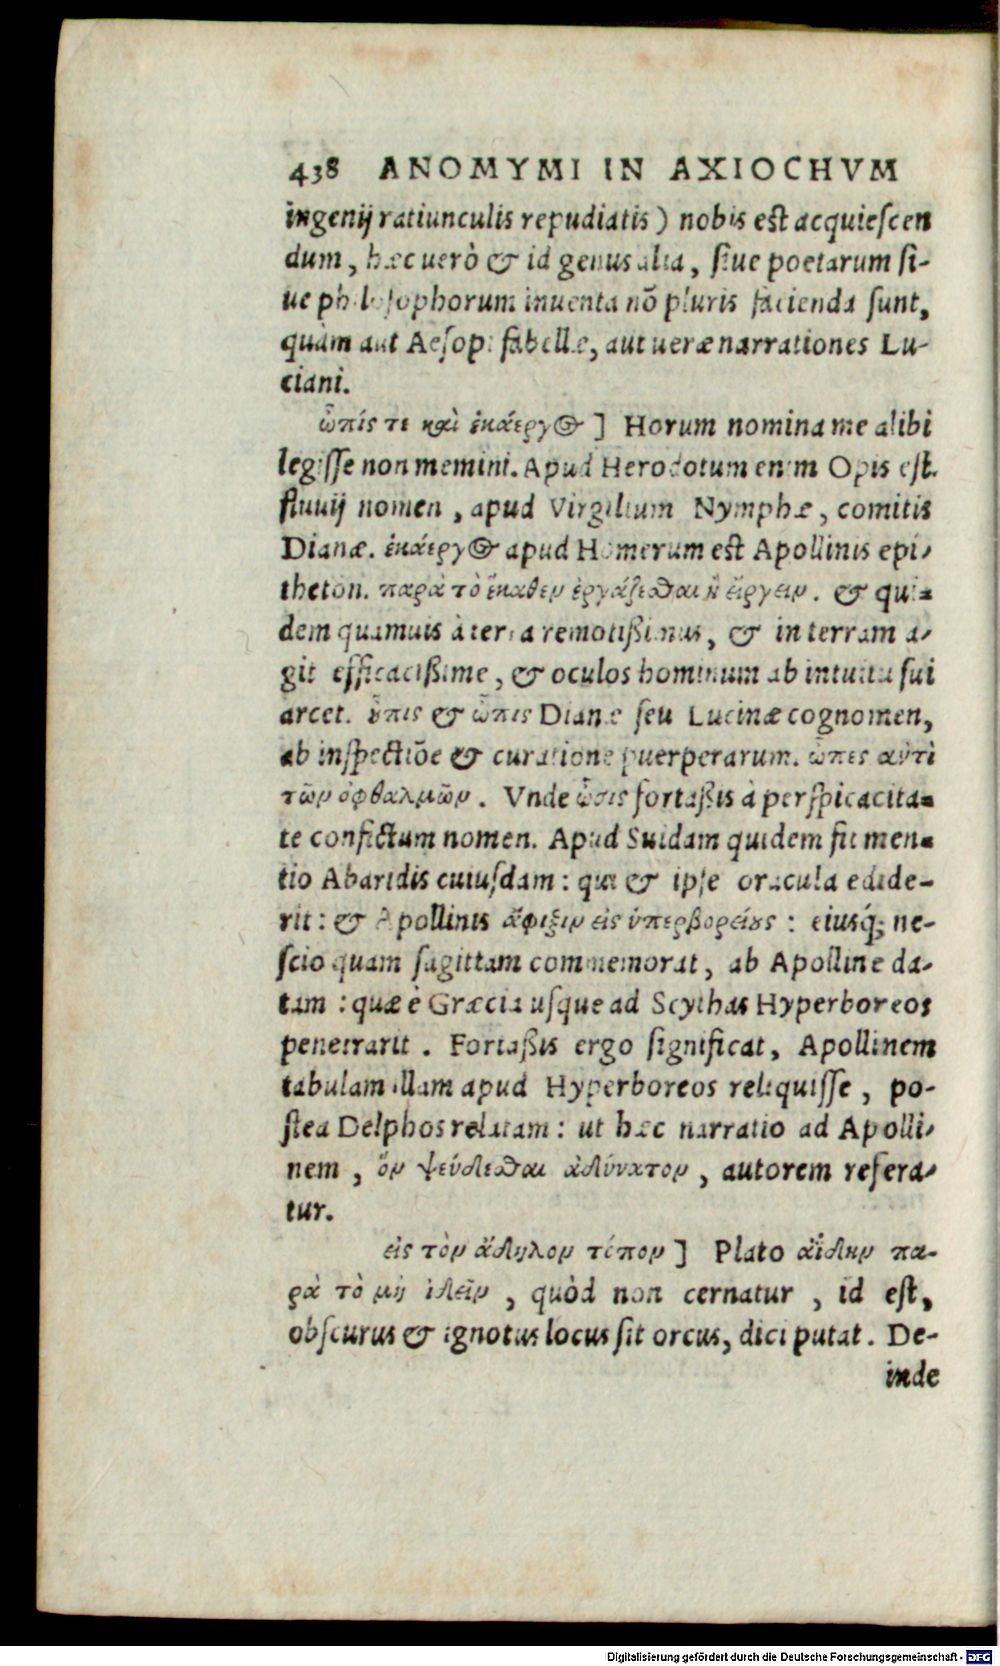 438 ANOMYMI IN AXIOCHVM
ingenij ratiunculis repudiatis) nobis est acquiescen
dum, hæc uerò & id genus alia, siue poetarum si-
ue philosophorum inuenta nō pluris facienda sunt,
quàm aut Aesopi fabellæ, aut ueræ narrationes Lu-
ciani.
ὦπίς τε καὶ ἑκάεργος] Horum nomina me alibi
legisse non memini. Apud Herodotum enim Opis est
fluuij nomen, apud Virgilium Nymphæ, comitis
Dianæ. ἑκάεργος apud Homerum est Apollinis epi-
theton. παρὰ τὸ ἕκαθεν ἐργάζεσθαι ἢ εἴργειν. & qui-
dem quamuis à terra remotißimus, & in terram a-
git efficacißime, & oculos hominum ab intuitu sui
arcet. οὖπις & ὦπις Dianæ seu Lucinæ cognomen,
ab inspectiōe & curatione puerperarum. ὦπες αὐτὶ
τῶν ὀφθαλμῶν. Vnde ὦσις fortaßis à perspicacita-
te confictum nomen. Apud Suidam quidem fit men-
tio Abaridis cuiusdam: qui & ipse oracula edide-
rit: & Apollinis ἄφιξιν εἰς ὑπερβορείους: eiusq́; ne-
scio quam sagittam commemorat, ab Apolline da-
tam: quæ è Græcia usque ad Scythas Hyperboreos
penetrarit. Fortaßis ergo significat, Apollinem
tabulam illam apud Hyperboreos reliquisse, po-
stea Delphos relatam: ut hæc narratio ad Apolli-
nem, ὃν ψεύδεσθαι ἀδύνατον, autorem refera-
tur.
εἰς τὸν ἄδηλον τόπον] Plato ἀΐδην πα-
ρὰ τὸ μὴ ἰδεῖν, quòd non cernatur, id est,
obscurus & ignotus locus sit orcus, dici putat. De-
inde
Digitalisierung gefördert durch die Deutsche Forschungsgemeinschaft - DFG